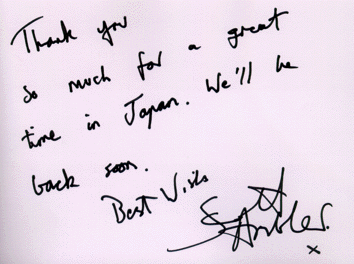 Thank you
so much for a great
time in Japan. We'll be
back soon.
Best
x